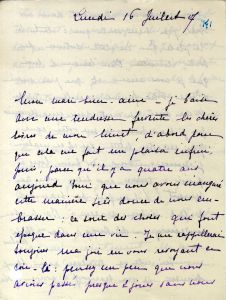 Lundi 16 Juillet
Mon mari bien-aimé – je baise
avec une tendresse les chères
lèvres de mon, d'abord parce
que cela me fait un plaisir infini,
puis, parce qu'il y a quatre ans
aujourd'hui que nous avons
cette manière très douce de nous em-
brasser : ce sont des choses qui font
époque dans une vie. Je me rappellerai
toujours ma joie en vous revoyant ce
 là : pensez un peu que nous
avions passé presque 2 jours sans nous